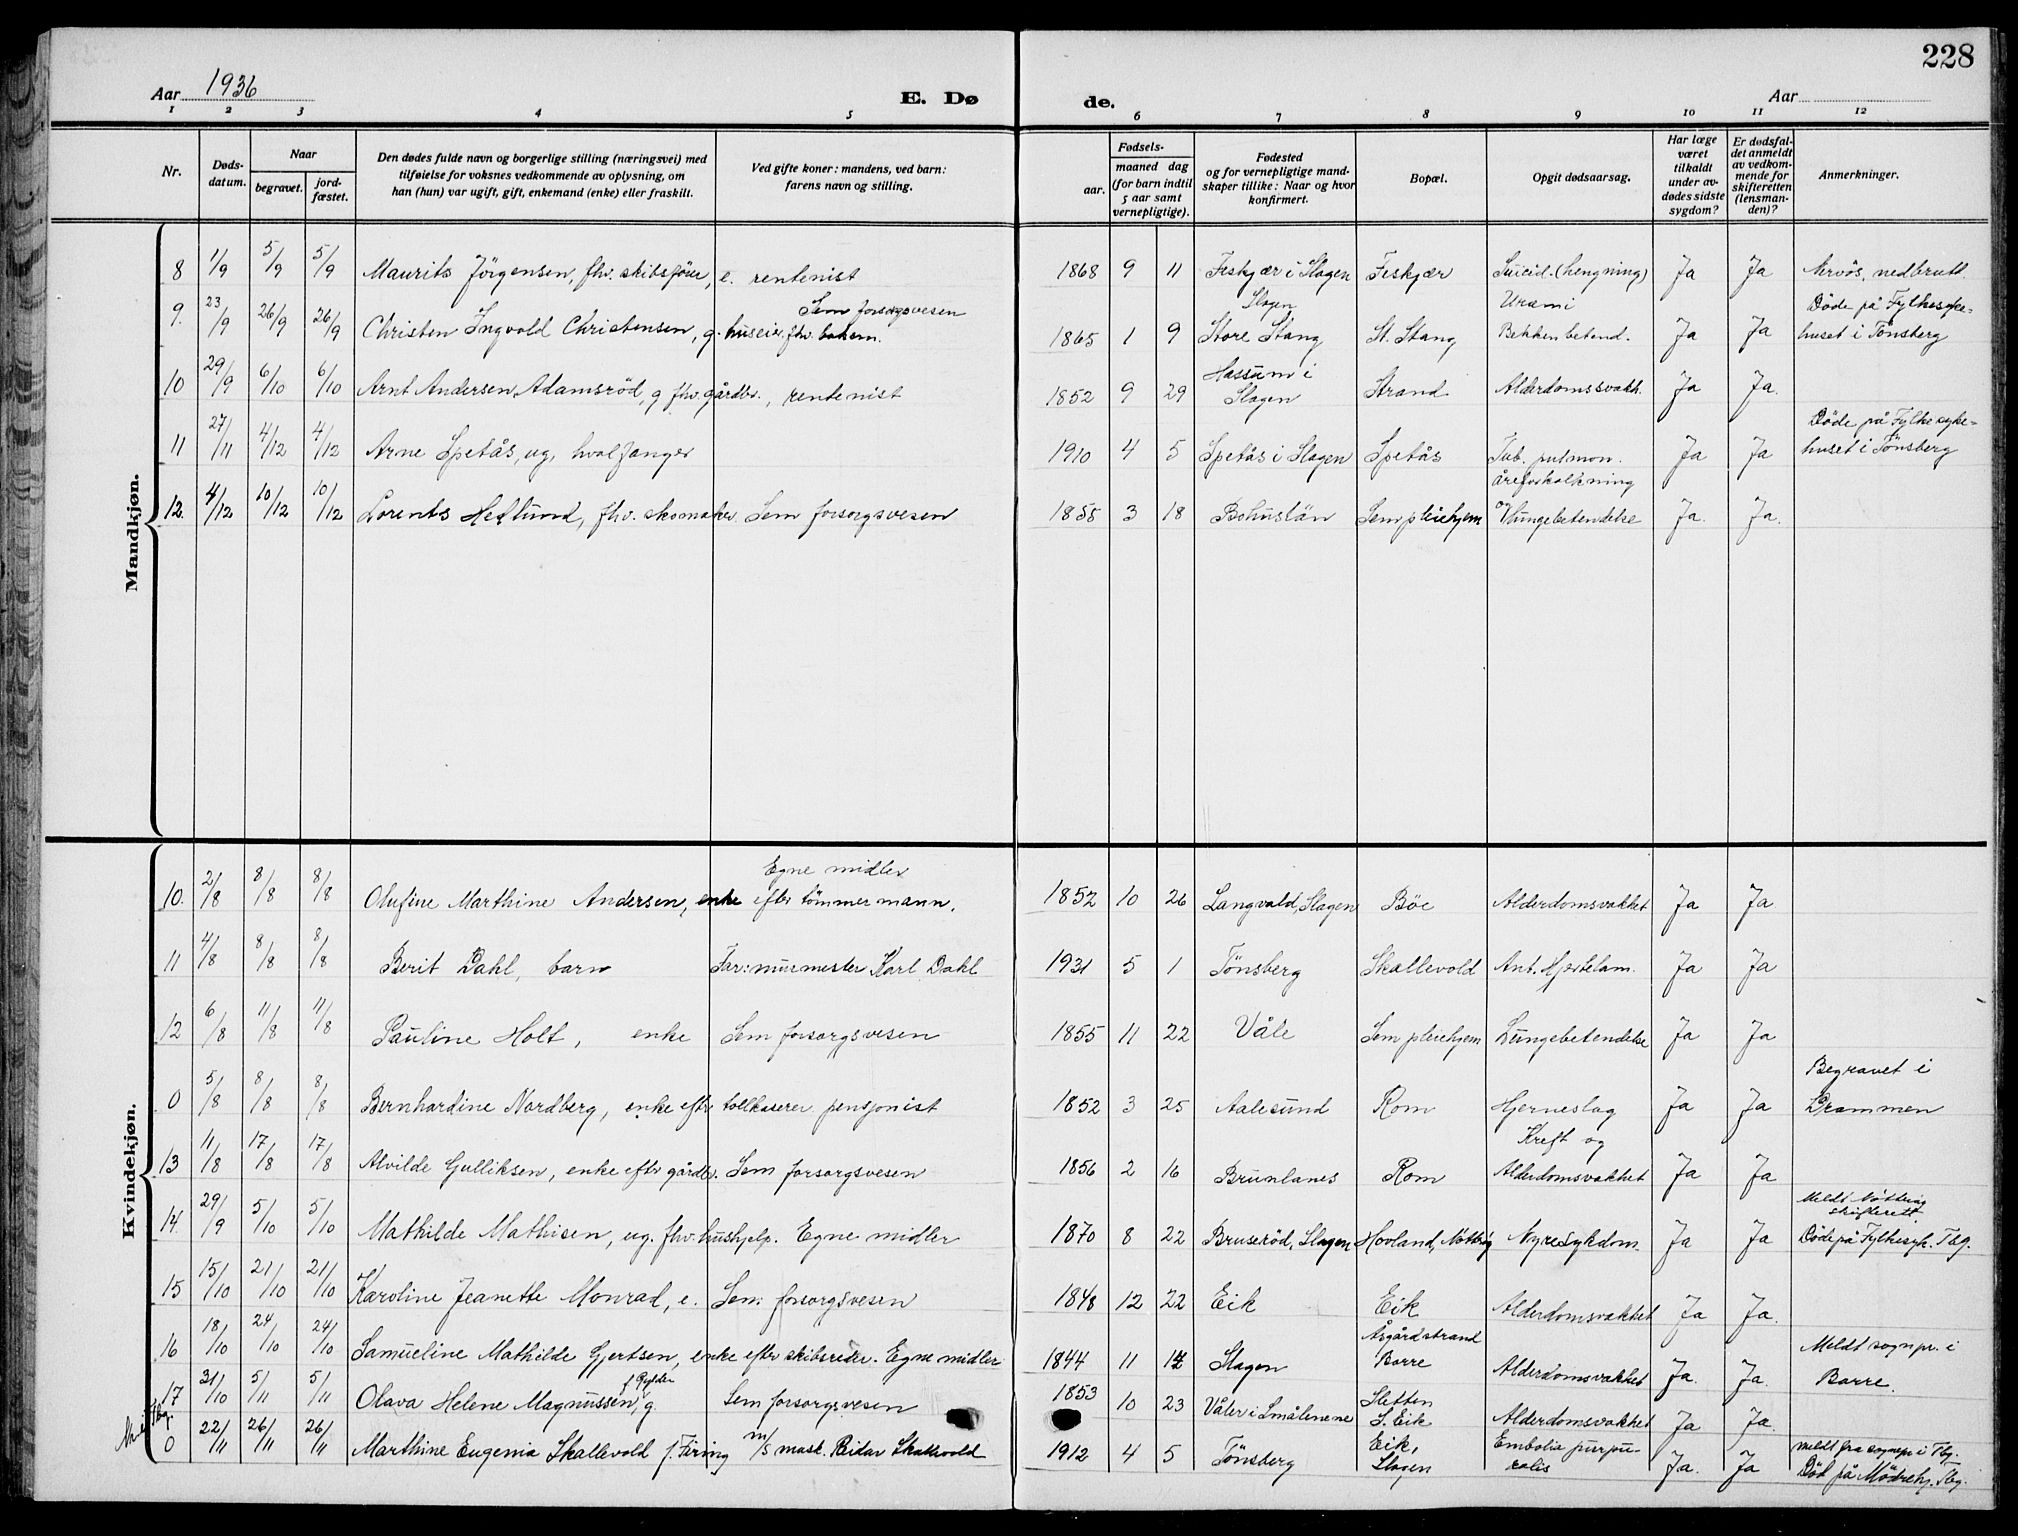 228
Aar 1936
E. Dø
de.
Aar
1 2 3 4 5 6 7 8 9 10 11 12
Nr.
Døds-
datum.
Naar
begravet.
jord-
fæstet.
Den dødes fulde navn og borgerlige stilling (næringsvei) med
tilføielse for voksnes vedkommende av oplysning, om
han (hun) var ugift, gift, enkemand (enke) eller fraskilt.
Ved gifte koner: mandens, ved barn:
farens navn og stilling.
Fødsels-
aar.
maaned dag
(for barn indtil
5 aar samt
vernepligtige).
Fødested
og for vernepligtige mand-
skaper tillike: Naar og hvor
konfirmert.
Bopæl.
Opgit dødsaarsag.
Har læge
været
tilkaldt
under av-
dødes sidste
sygdom?
Er dødsfal-
det anmeldt
av vedkom-
mende for
skifteretten
(lensman-
den)?
Anmerkninger.
Mandkjøn.
8 1/9 5/9 5/9 Maurits Jørgensen, fhv. skibsfører, e. rentenist 1868 9 11 Feskjær i Slagen Feskjær Suicid. (hengning) Ja Ja Nervös, nedbrutt.
Sem forsorgsvesen Slagen Uræmi Döde på Fylkessyke-
9. 23/9 26/9 26/9 Christen Ingvald Christensen, g. huseier, fhv. bakern. 1865 1 9 Store Stang St. Stang Bekkenbetend. Ja Ja huset i Tönsberg
Hassum i
10 29/9 6/10 6/10 Arnt Andersen Adamsröd, g. fhv. gårdbr., rentenist 1852 9 29 Slagen Strand Alderdomssvakh. Ja Ja.
Döde på Fylkesyke-
11 27/11 4/12 4/12 Arne Spetås, ug. hvalfanger 1910 4 5 Spetås i Slagen Spetås Tub. pulmon. Ja Ja huset i Tönsberg
åreforkalkning
12. 4/12 10/12 10/12 Lorents Hedlund, fhv. skomaker Sem forsorgsvesen 1855 3 18 Bohuslän Sem pleiehjem o/lungebetendelse Ja. Ja.
Kvindekjøn.
Egne midler
10. 2/8 8/8 8/8 Olufine Marthine Andersen, enke efter tömmermann. 1852 10 26 Langvald, Slagen Böe Alderdomsvakhet Ja Ja
11 4/8 8/8 8/8 Berit Dahl, barn Far: murmester Karl Dahl 1931 5 1 Tönsberg Skallevold Ant. Hjertelam. Ja Ja
12 6/8 11/8 11/8 Pauline Holt, enke Sem forsorgsvesen 1855 11 22 Våle Sem pleiehjem Lungebetendelse Ja Ja
Begravet i
0 5/8 8/8 8/8 Bernhardine Nordberg, enke efter tollkaserer, pensjonist 1852 3 25 Aalesund Rom Hjerneslag Ja Ja Drammen
Kreft og
13 11/8 17/8 17/8 Alvilde Gulliksen, enke efter gårdbr. Sem forsorgsvesen 1856 2 16 Brunlanes Rom Alderdomsvakhet Ja Ja
Meldt Nötteröy
skifterett.
14. 29/9 5/10 5/10 Mathilde Mathisen, ug. fhv. hushjelp. Egne midler 1870 8 22 Bruseröd, Slagen Hovland, Nötteröy Nyresykdom. Ja Ja Döde på Fylkesyk. Tbg.
15 15/10 21/10 21/10 Karoline Jeanette Monrad, e. Sem forsorgsvesen 1848 12 22 Eik Eik Alderdomsvakhet Ja Ja.
Åsgårdstrand Meldt sognpr. i
16 18/10 24/10 24/10 Samueline Mathilde Gjertsen, enke efter skibsreder. Egne midler 1844 11 14 Slagen Borre Alderdomsvakhet Ja. Ja. Borre.
Sletten
17 31/10 5/11 5/11 Olava Helene Magnussen, g. Sem forsorgsvesen 1853 10 23 Våler i Smålenene S. Eik Alderdomsvakhet Ja Ja.
Eik, Embolia puerpu- Meldt fra sognepr. i Tbg.
0 22/11 26/11 26/11 Marthine Eugenia Skallevold f. Firing m/s mask. Reidar Skallevold 1912 4 5 Tönsberg Slagen ralis Ja. Ja Död på Mödrehj. Tbg.